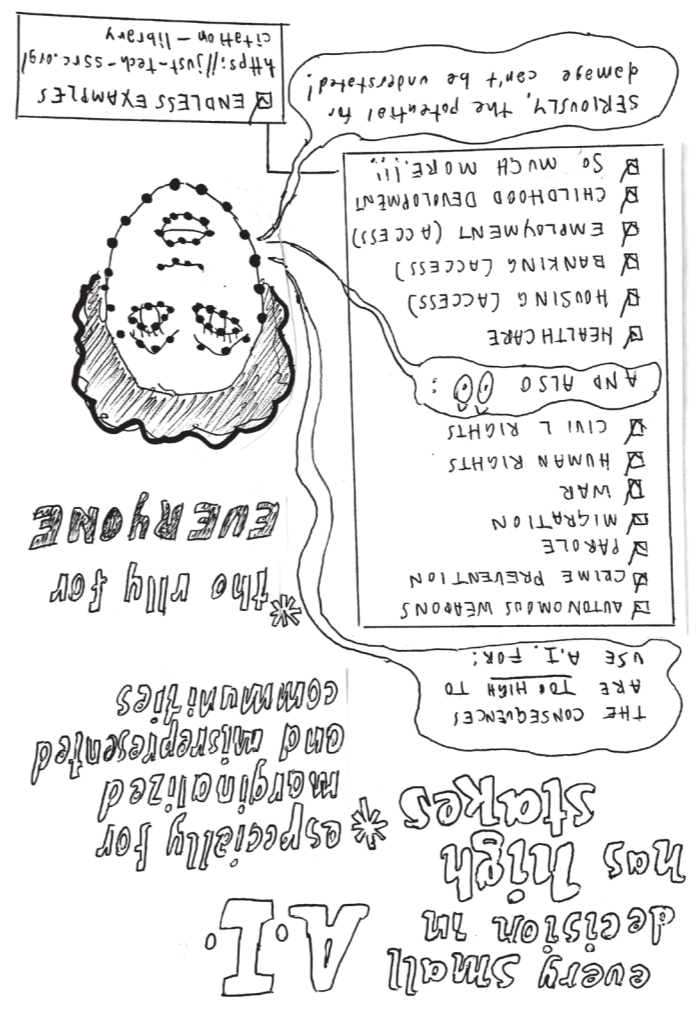 every small
decision in
A.I.
has high
stakes
*especially for
marginalized
and misrepresented
communities
*tho rlly for
EVERYONE
THE CONSEQUENCES
ARE TOO HIGH TO
USE A.I. FOR:
AUTONOMOUS WEAPONS
CRIME PREVENTION
PAROLE
MIGRATION
WAR
HUMAN RIGHTS
CIVIL RIGHTS
AND ALSO :
HEALTHCARE
HOUSING (ACCESS)
BANKING (ACCESS)
EMPLOYMENT (ACCESS)
CHILDHOOD DEVOLOPMENT
SO MUCH MORE.!!!
SERIOUSLY, the potential for
damage can't be understated!
ENDLESS EXAMPLES
https://just-tech-ssrc.org/
citation-library